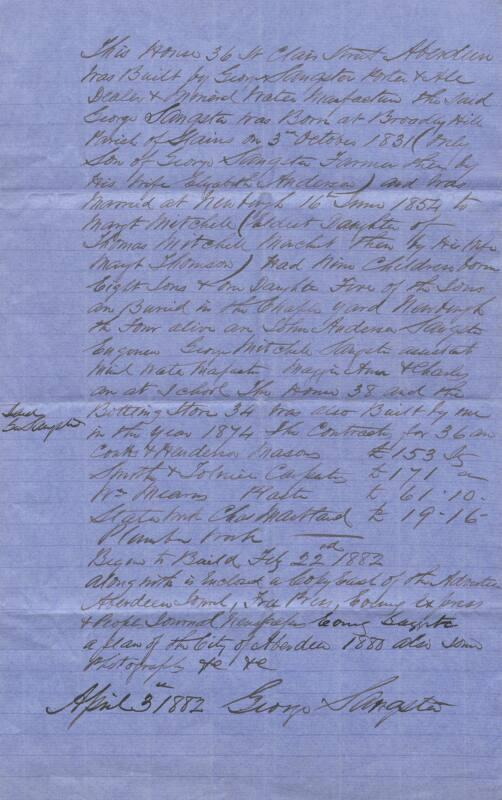 This House 36 St Clair Street Aberdeen
Was Built by George Sangster Porter & Ale
Dealer & Mineral Water Manufacturer the Said
George Sangster was Born at Broadly Hill
Parish of Slains on 3rd October 1831 (only
Son of George Sangster Farmer then by
His Wife Elizabeth Anderson) and was
Married at Newburgh 16th June 1854 to
Margt Mitchell (Eldest Daughter of
Thomas Mitchell then by His Wife
Margt Thomson) Had Nine Children born
Eight Sons & one Daughter Five of the Sons
are Buried in the Chapel yard Newburgh
the Four alive are John Anderson Sangster
Engineer George Mitchell Sangster assistant
Maggie Ann & Charles
are at School The House 38 and the
Bottling Store 34 was also Built by me
Said
Geo Sangster
in the year 1874 The Contracts for 36 are
Coutts & Henderson Masons £ 153
Smith & Carpenters £ 171
Wm Mearns Plaster £ 61-10-
Slater work Chas Maitland £ 19-16-
Plumber work
Began to Build Feby 22nd 1882
Along with is inclosed a Copy each of the
Aberdeen Journal, Free Press, Evening Express
& Peoples Journal Newspapers Evening Gazette
a plan of the City of Aberdeen 1880 also some
Photographs &c &c
April 3rd 1882 George Sangster